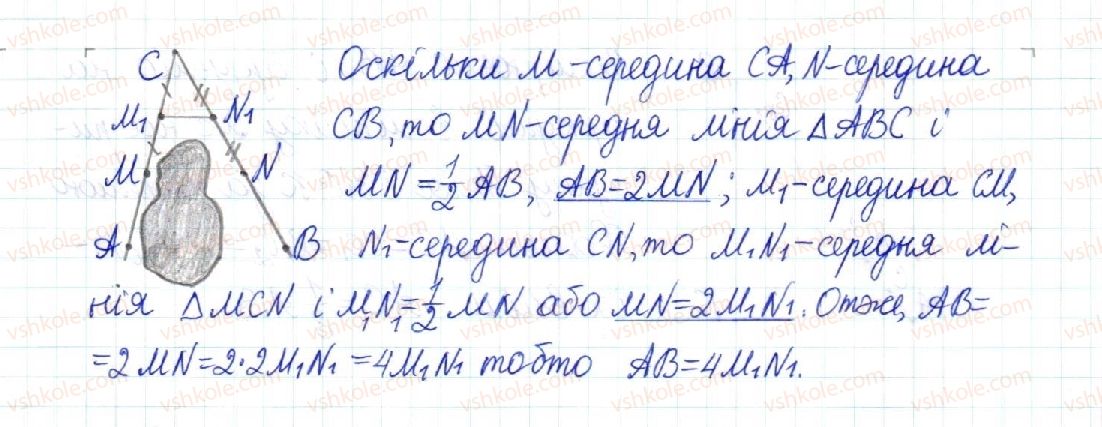 C
M₁ N₁
M N
A B
Оскільки M -середина CA, N-середина
CB, то MN-середня лінія △ABC і
MN = 1/2 AB, AB=2MN ; M₁-середина CM,
N₁-середина CN, то M₁N₁-середня лі-
нія △MCN і M₁N₁ = 1/2 MN або MN=2M₁N₁. Отже, AB=
=2MN=2·2M₁N₁ =4M₁N₁ тобто AB=4M₁N₁.
vshkole.com